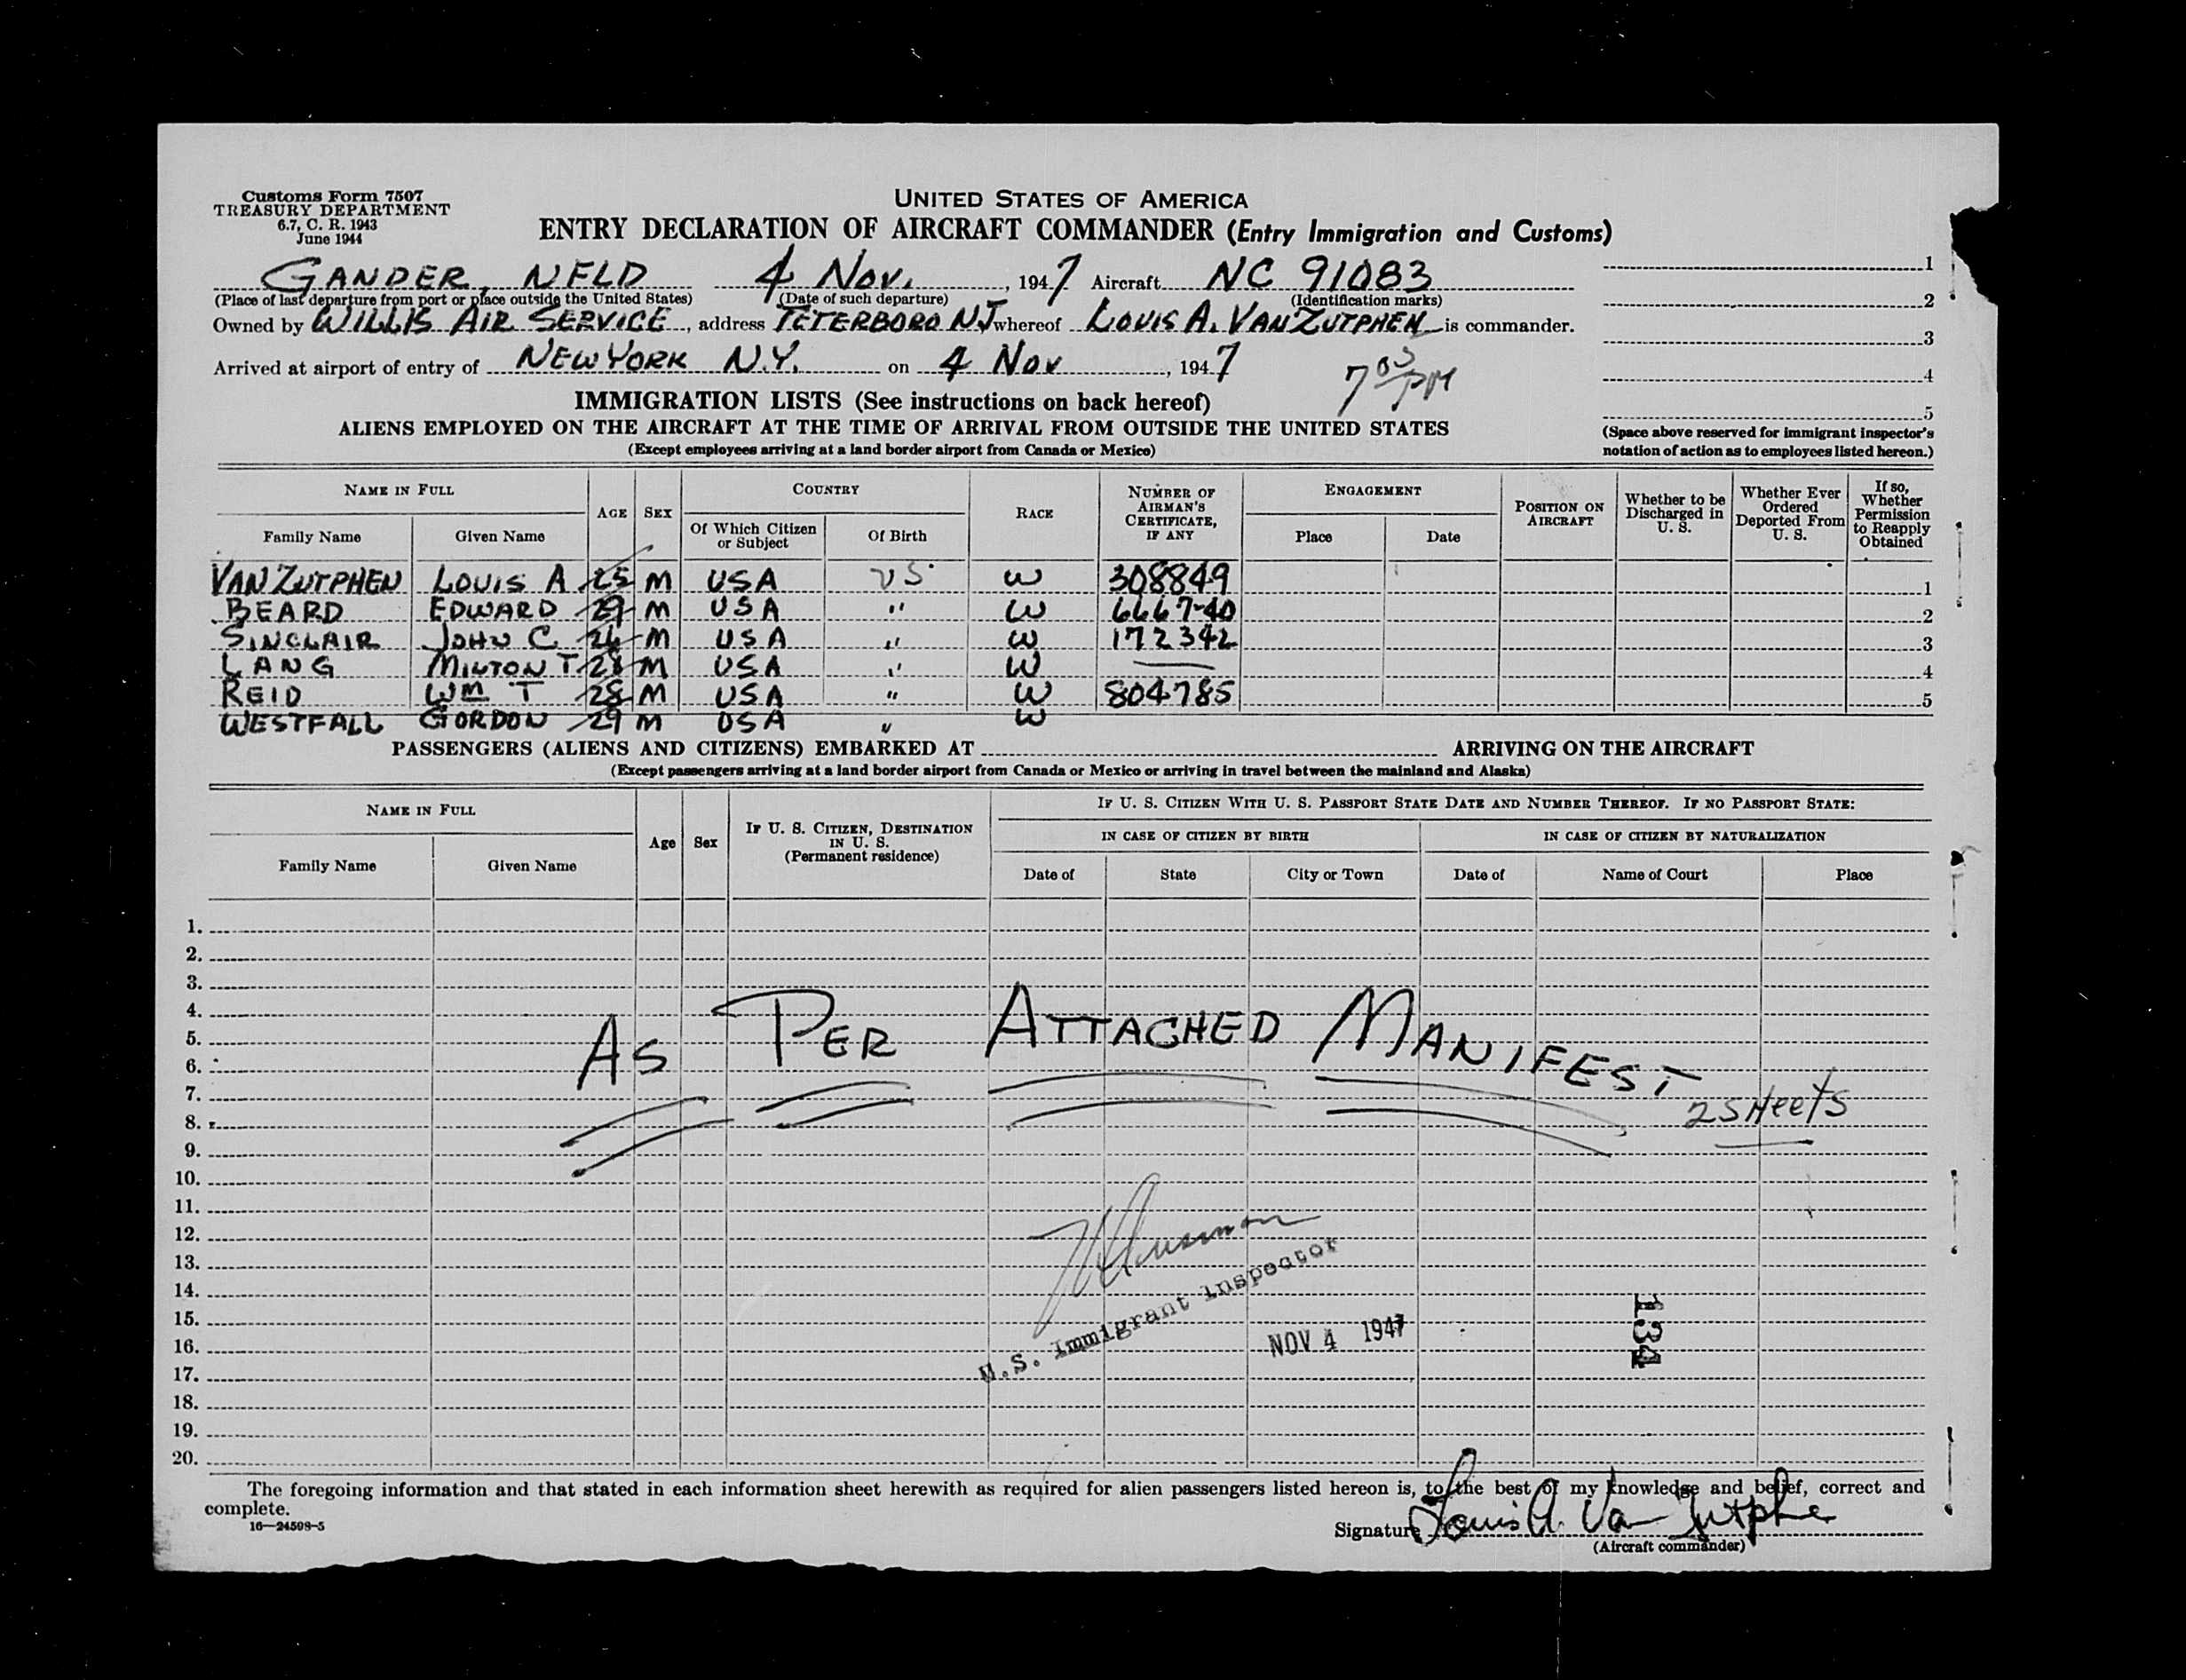 Customs Form 7507
TREASURY DEPARTMENT
6.7, C. R. 1943
June 1944
UNITED STATES OF AMERICA
ENTRY DECLARATION OF AIRCRAFT COMMANDER (Entry Immigration and Customs)
GANDER, NFLD 4 Nov., 1947 Aircraft NC 91083
(Place of last departure from port or place outside the United States) (Date of such departure) (Identification marks)
Owned by WILLIS AIR SERVICE, address TETERBORO NJ whereof LOUIS A. VAN ZUTPHEN is commander.
Arrived at airport of entry of NEW YORK N.Y. on 4 Nov, 1947
7 05 PM
1
2
3
4
5
(Space above reserved for immigrant inspector's
notation of action as to employees listed hereon.)
IMMIGRATION LISTS (See instructions on back hereof)
ALIENS EMPLOYED ON THE AIRCRAFT AT THE TIME OF ARRIVAL FROM OUTSIDE THE UNITED STATES
(Except employees arriving at a land border airport from Canada or Mexico)
NAME IN FULL AGE SEX COUNTRY RACE NUMBER OF AIRMAN'S CERTIFICATE, IF ANY ENGAGEMENT POSITION ON AIRCRAFT Whether to be Discharged in U. S. Whether Ever Ordered Deported From U. S. If so, Whether Permission to Reapply Obtained
Family Name Given Name Of Which Citizen or Subject Of Birth Place Date
VAN ZUTPHEN LOUIS A 25 M USA US W 308849 1
BEARD EDWARD 29 M USA " W 6667-40 2
SINCLAIR JOHN C. 26 M USA " W 172342 3
LANG MILTON T 28 M USA " W — 4
REID WM T 28 M USA " W 804785 5
WESTFALL GORDON 29 M USA " W
PASSENGERS (ALIENS AND CITIZENS) EMBARKED AT ARRIVING ON THE AIRCRAFT
(Except passengers arriving at a land border airport from Canada or Mexico or arriving in travel between the mainland and Alaska)
NAME IN FULL Age Sex IF U. S. CITIZEN, DESTINATION IN U. S. (Permanent residence) IF U. S. CITIZEN WITH U. S. PASSPORT STATE DATE AND NUMBER THEREOF. IF NO PASSPORT STATE:
IN CASE OF CITIZEN BY BIRTH IN CASE OF CITIZEN BY NATURALIZATION
Family Name Given Name Date of State City or Town Date of Name of Court Place
1.
2.
3.
4.
5.
6.
7.
8.
9.
10.
11.
12.
13.
14.
15.
16.
17.
18.
19.
20.
AS PER ATTACHED MANIFEST
2 SHeets
U.S. Immigrant Inspector
NOV 4 1947
134
The foregoing information and that stated in each information sheet herewith as required for alien passengers listed hereon is, to the best of my knowledge and belief, correct and
complete.
16—24598-5
Signature Louis A. Van Zutphen
(Aircraft commander)